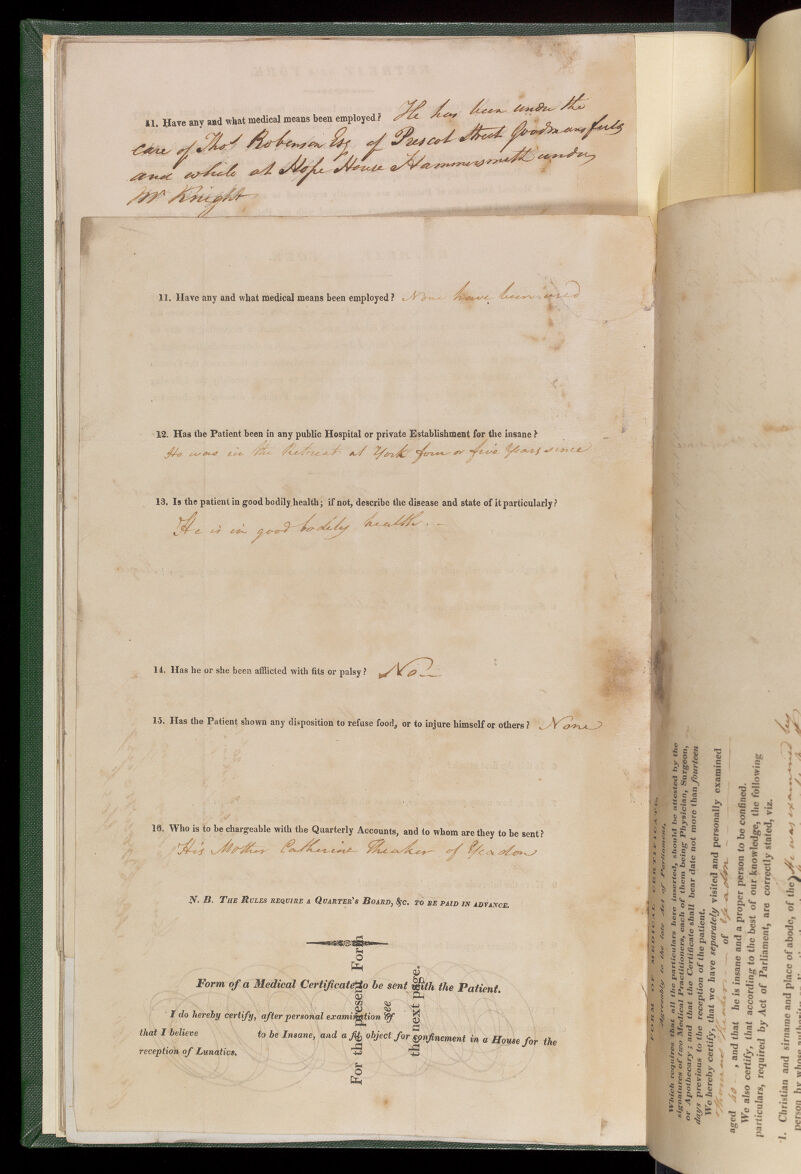 11. Have any and what medical means been employed? He has been under the
care of Thos Robinson Esq of Prescot Street Goodmansfields
and while at Hope House Hammersmith under
Mr Knight
11. Have any and what medical means been employed? None have been used
12. Has the Patient been in any public Hospital or private Establishment for the insane?
He was in the Retreat at York four or five Years since
13. Is the patient in good bodily health; if not, describe the disease and state of it particularly?
He is in good bodily health.—
14. Has he or she been afflicted with fits or palsy? No—
15. Has the Patient shown any disposition to refuse food, or to injure himself or others? None
16. Who is to be chargeable with the Quarterly Accounts, and to whom are they to be sent?
His Mother Catherine Theaker of Yeadon
N. B. THE RULES REQUIRE A QUARTER'S BOARD, &c. TO BE PAID IN ADVANCE.
Form of a Medical Certificate to be sent with the Patient.
I do hereby certify, after personal examination of
that I believe to be Insane, and a fit object for confinement in a House for the
reception of Lunatics.
For the present Form
see
the next page.
FORM OF MEDICAL CERTIFICATE,
Agreeably to the late Act of Parliament,
Which requires that all the particulars here inserted, should be attested by the
signatures of two Medical Practitioners, each of them being Physician, Surgeon,
or Apothecary; and that the Certificate shall bear date not more than fourteen
days previous to the reception of the patient.
We hereby certify, that we have separately visited and personally examined
of Yeadon
aged , and that he is insane and a proper person to be confined.
We also certify, that according to the best of our knowledge, the following
particulars, required by Act of Parliament, are correctly stated, viz.
1. Christian and sirname and place of abode, of the He was examined by
person by whose authority